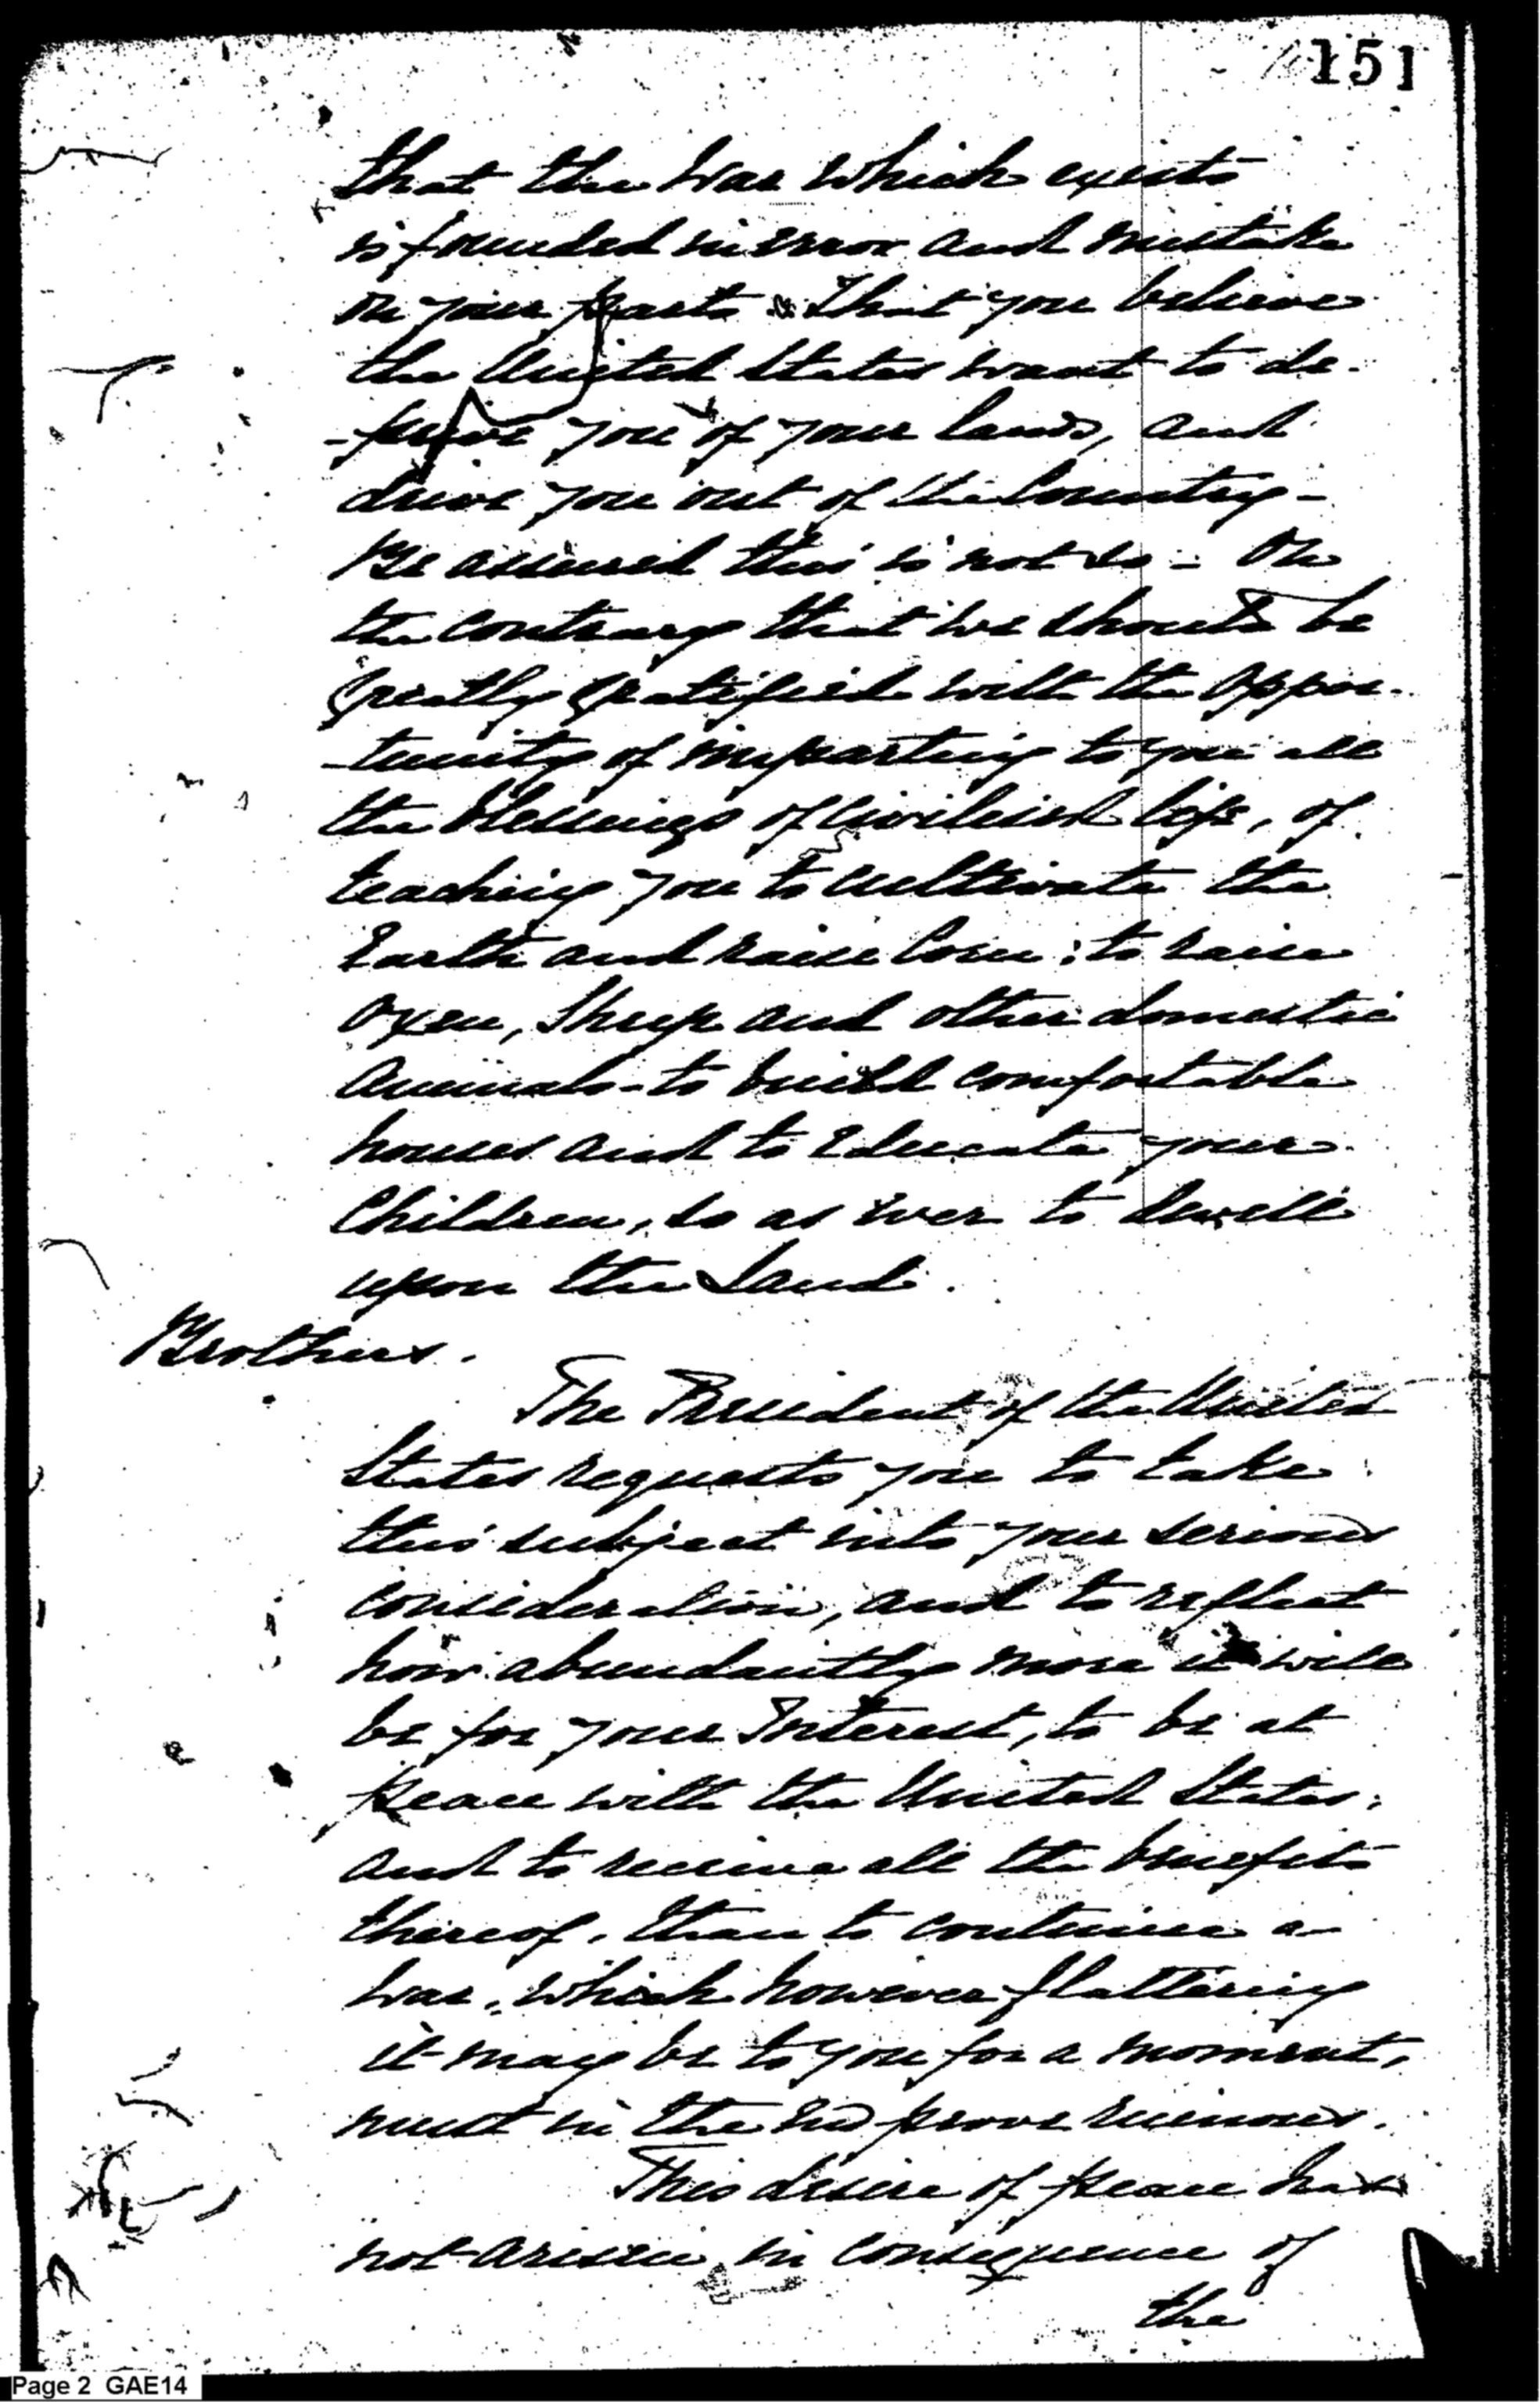 151
that the War which exists
is founded in error and mistake
on your parts. That you believe
the United States want to de-
-prive you of your lands, and
drive you out of the Country-
Be assured this is not so - On
the contrary that we should be
greatly gratified with the oppor-
-tunity of imparting to you all
the blessings of civilised life, of
teaching you to cultivate the
Earth and raise Corn; to raise
Oxen, Sheep and other domestic
Animals - to build comfortable
houses and to Educate your
Children, so as ever to dwell
upon the Land.
Brothers.
The President of the United
States requests you to take
this subject into your serious
consideration, and to reflect
how abundantly more it will
be for your Interest, to be at
peace with the United States,
and to receive all the benefits
thereof, than to continue a
War, which however flattering
it may be to you for a moment,
must in the end prove ruinous.
This desire of peace has
not arisen in consequence of
the
Page 2 GAE14